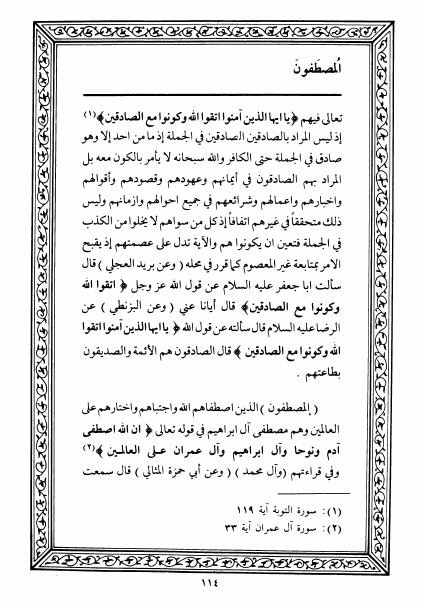 المصطَفونَ
تعالى فيهم ﴿يا ايها الذين آمنوا اتقوا الله وكونوا مع الصادقين﴾(١)
إذ ليس المراد بالصادقين الصادقين في الجملة إذ ما من احد إلا وهو
صادق في الجملة حتى الكافر والله سبحانه لا يأمر بالكون معه بل
المراد بهم الصادقون في أيمانهم وعهودهم وقصودهم وأقوالهم
واخبارهم واعمالهم وشرائعهم في جميع احوالهم وازمانهم وليس
ذلك متحققاً في غيرهم اتفاقاً إذ كل من سواهم لا يخلوا من الكذب
في الجملة فتعين ان يكونوا هم والآية تدل على عصمتهم إذ يقبح
الامر بمتابعة غير المعصوم كما قرر في محله (وعن بريد العجلي) قال
سألت ابا جعفر عليه السلام عن قول الله عز وجل ﴿ اتقوا الله
وكونوا مع الصادقين﴾ قال أيانا عني (وعن البزنطي) عن
الرضا عليه السلام قال سألته عن قول الله ﴿ يا ايها الذين آمنوا اتقوا
الله وكونوا مع الصادقين ﴾ قال الصادقون هم الأئمة والصديقون
بطاعتهم .
( المصطفون ) الذين اصطفاهم الله واجتباهم واختارهم على
العالمين وهم مصطفى آل ابراهيم في قوله تعالى ﴿ ان الله اصطفى
آدم ونوحا وآل ابراهيم وآل عمران على العالمين ﴾(٢)
وفي قراءتهم (وآل محمد ) ( وعن أبي حمزة الثمالي ) قال سمعت
(١): سورة التوبة آية ١١٩
(٢): سورة آل عمران آية ٣٣
١١٤